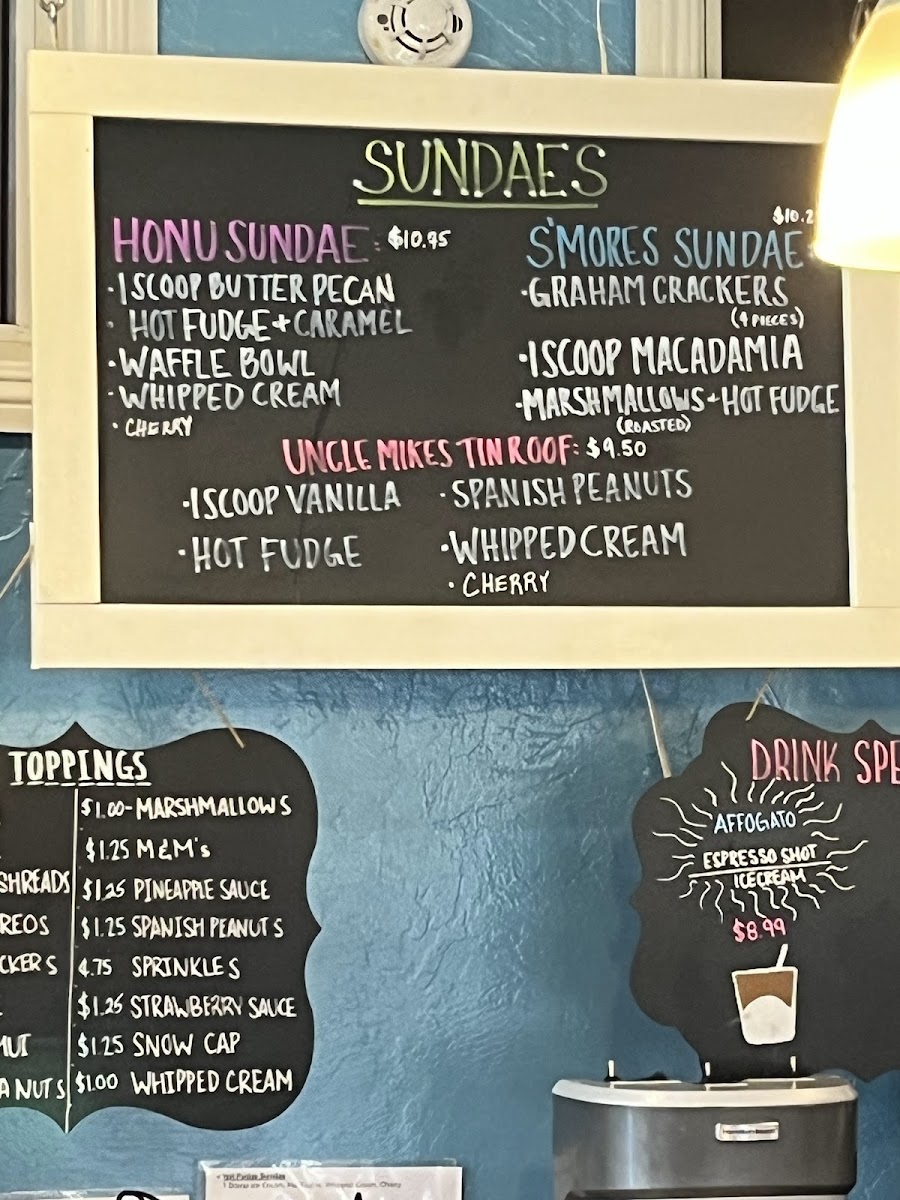 SUNDAES
HONU SUNDAE: $10.95
·1 SCOOP BUTTER PECAN
· HOT FUDGE + CARAMEL
·WAFFLE BOWL
·WHIPPED CREAM
· CHERRY
$10.2
S'MORES SUNDAE
·GRAHAM CRACKERS
(4 PIECES)
·1 SCOOP MACADAMIA
·MARSHMALLOWS + HOT FUDGE
(ROASTED)
UNCLE MIKES TIN ROOF: $9.50
·1 SCOOP VANILLA
·HOT FUDGE
·SPANISH PEANUTS
·WHIPPED CREAM
· CHERRY
TOPPINGS
SHREADS
REOS
CKERS
NUT
ANUTS
$1.00-MARSHMALLOWS
$1.25 M&M's
$1.25 PINEAPPLE SAUCE
$1.25 SPANISH PEANUTS
4.75 SPRINKLES
$1.25 STRAWBERRY SAUCE
$1.25 SNOW CAP
$1.00 WHIPPED CREAM
DRINK SPE
AFFOGATO
ESPRESSO SHOT
ICECREAM
$8.99